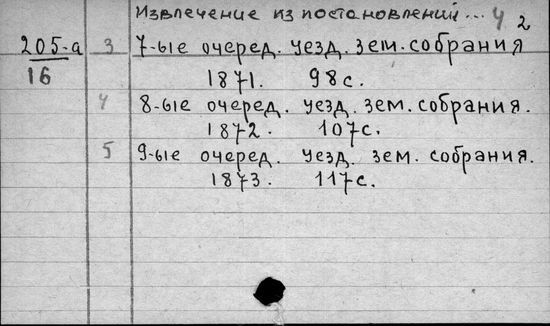 Извлечение из постановлений... 4 2
205-а 3 7-ые очеред. уезд. зем. собрания
16
1871. 98с.
4 8-ые очеред. уезд. зем. собрания.
1872. 107с.
5 9-ые очеред. уезд. зем. собрания.
1873. 117с.